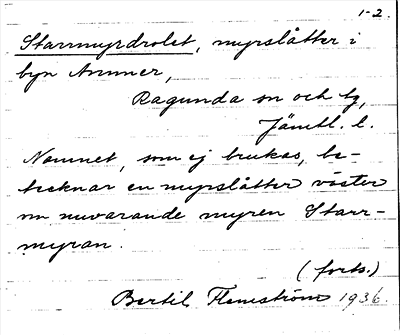 1-2.
Starrmyrdrolet, myrslåtter i
byn Ammer,
Ragunda sn och tg,
Jämtl. l.
Namnet, som ej brukas, be-
tecknar en myrslåtter väster
om nuvarande myren Starr-
myran.
(forts.)
Bertil Flemström 1936.